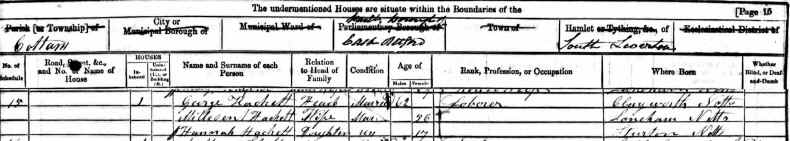 The undermentioned Houses are situate within the Boundaries of the
[Page 15
Parish [or Township] of
City or
Municipal Borough of
Municipal Ward of
Parliamentary Borough of
Town of
Hamlet or Tything, &c., of
Ecclesiastical District of
Cottam
East Retford
South Leverton
No. of Schedule
Road, Street, &c., and No. or Name of House
HOUSES
Name and Surname of each Person
Relation to Head of Family
Condition
Age of
Males
Females
Rank, Profession, or Occupation
Where Born
Whether Blind, or Deaf-and-Dumb
15 1 George Hackett Head Married 62 Laborer Clayworth Notts
Hackett Wife Mar Laneham Notts
Hannah Hackett Daughter Un 17 Notts